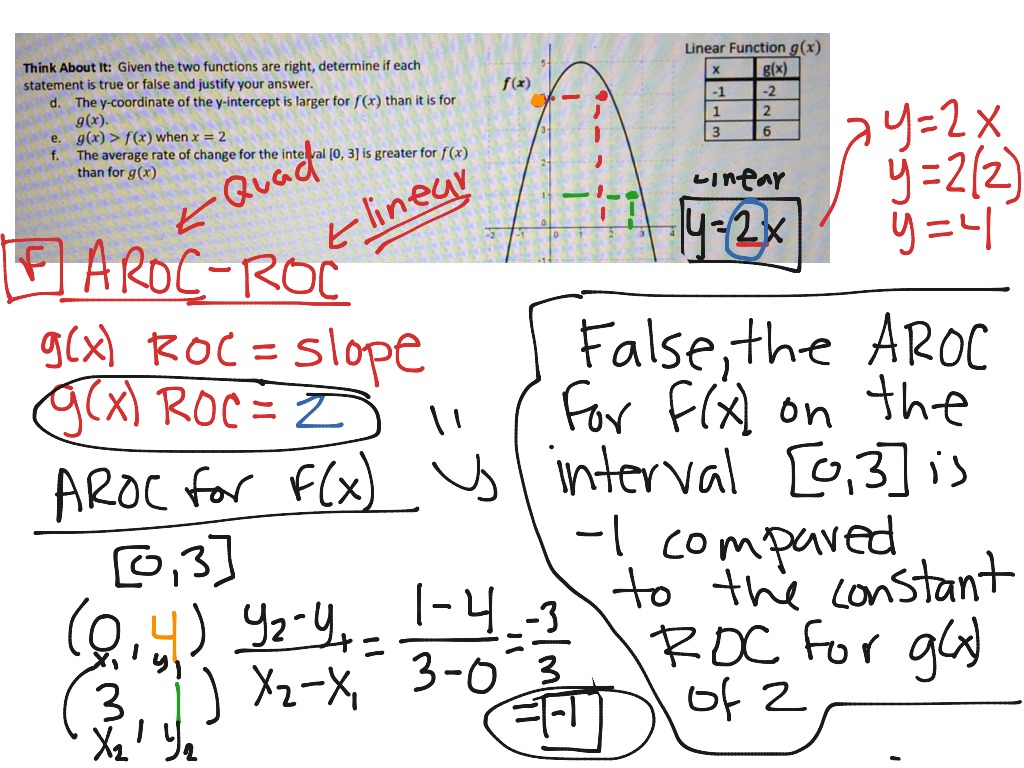 Think About It: Given the two functions are right, determine if each
statement is true or false and justify your answer.
d. The y-coordinate of the y-intercept is larger for f(x) than it is for
g(x).
e. g(x) > f(x) when x = 2
f. The average rate of change for the interval [0, 3] is greater for f(x)
than for g(x)
f(x)
5
3
2
1
0
-1
-2 -1 0 1 2 3 4
Linear Function g(x)
x g(x)
-1 -2
1 2
3 6
Linear
y=2x
y=2x
y=2(2)
y=4
Quad
linear
F AROC-ROC
g(x) ROC = slope
g(x) ROC = 2
AROC for f(x)
[0,3]
(0, 4)
x₁, y₁
(3, 1)
x₂, y₂
y₂-y₁ / x₂-x₁ = 1-4 / 3-0 = -3 / 3
= -1
False, the AROC
for f(x) on the
interval [0,3] is
-1 compared
to the constant
ROC for g(x)
of 2